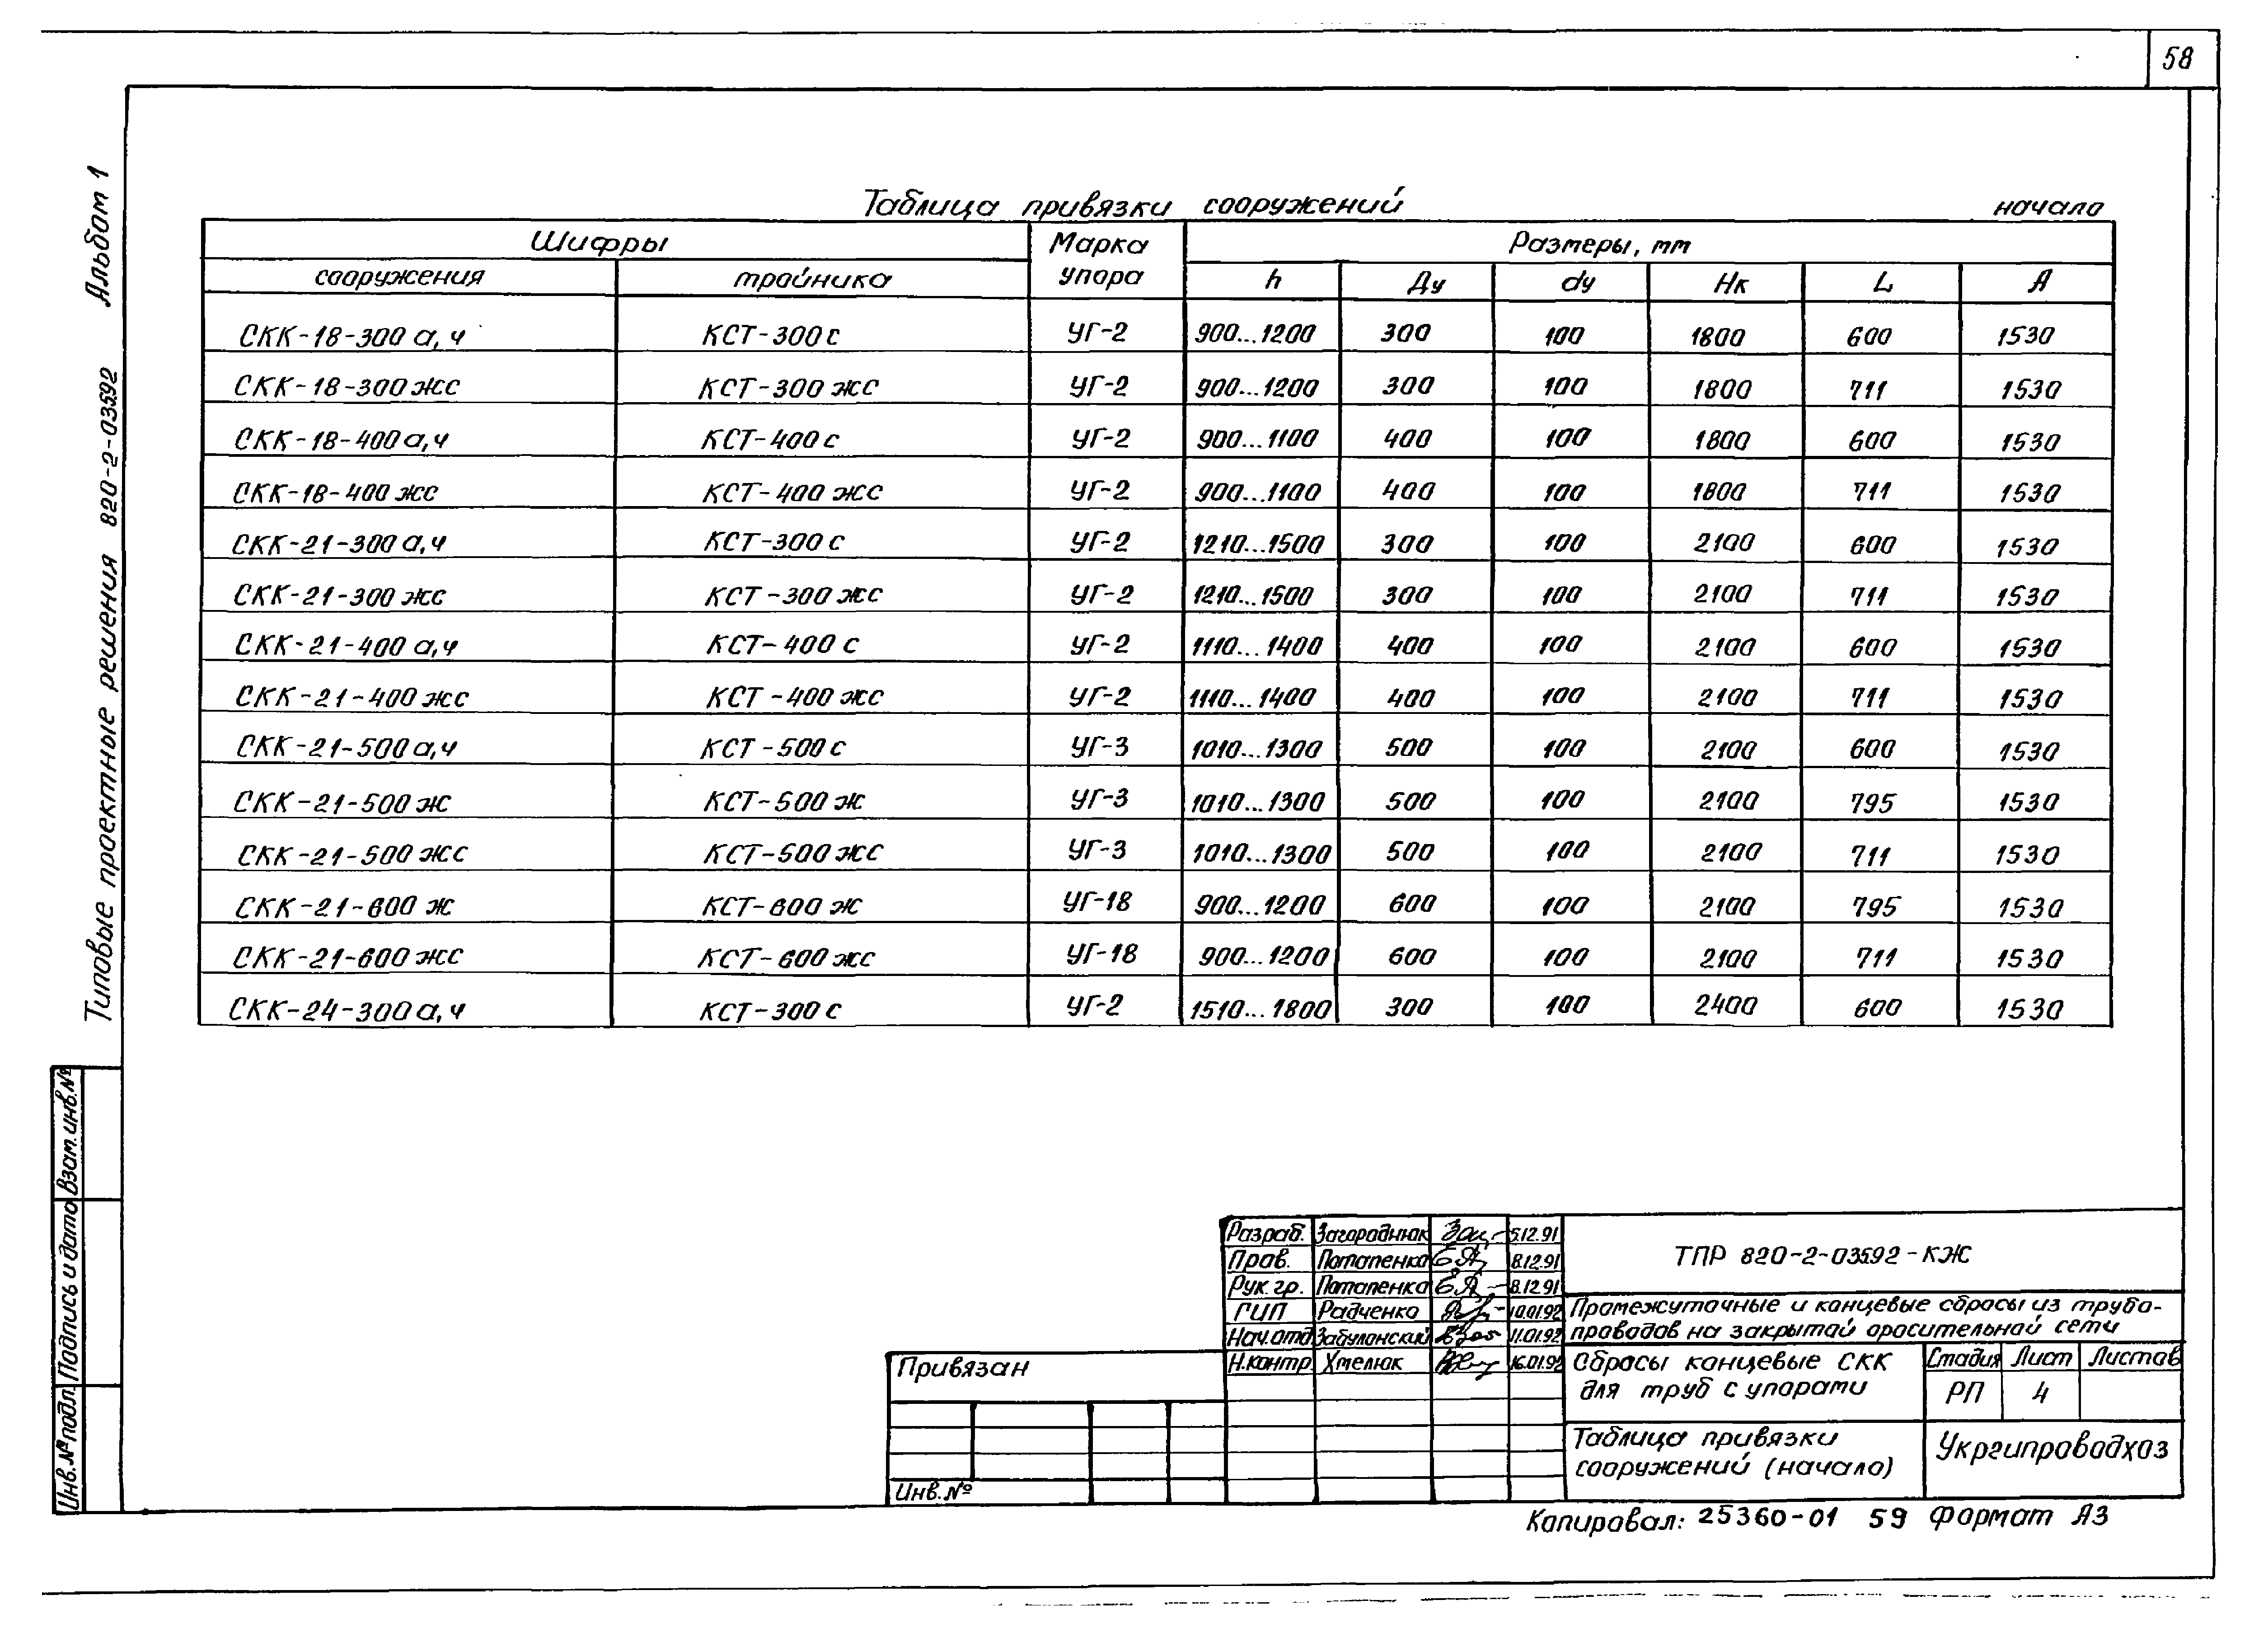 58
Альбом 1
Типовые проектные решения 820-2-03592
Таблица привязки сооружений
начало
Шифры
Марка упора
Размеры, мм
сооружения тройника h Ду dу Нк L А
СКК-18-300 а,ч КСТ-300 с УГ-2 900...1200 300 100 1800 600 1530
СКК-18-300 жс КСТ-300 жс УГ-2 900...1200 300 100 1800 711 1530
СКК-18-400 а,ч КСТ-400 с УГ-2 900...1100 400 100 1800 600 1530
СКК-18-400 жс КСТ-400 жс УГ-2 900...1100 400 100 1800 711 1530
СКК-21-300 а,ч КСТ-300 с УГ-2 1210...1500 300 100 2100 600 1530
СКК-21-300 жс КСТ-300 жс УГ-2 1210...1500 300 100 2100 711 1530
СКК-21-400 а,ч КСТ-400 с УГ-2 1110...1400 400 100 2100 600 1530
СКК-21-400 жс КСТ-400 жс УГ-2 1110...1400 400 100 2100 711 1530
СКК-21-500 а,ч КСТ-500 с УГ-3 1010...1300 500 100 2100 600 1530
СКК-21-500 ж КСТ-500 ж УГ-3 1010...1300 500 100 2100 795 1530
СКК-21-500 жс КСТ-500 жс УГ-3 1010...1300 500 100 2100 711 1530
СКК-21-600 ж КСТ-600 ж УГ-18 900...1200 600 100 2100 795 1530
СКК-21-600 жс КСТ-600 жс УГ-18 900...1200 600 100 2100 711 1530
СКК-24-300 а,ч КСТ-300 с УГ-2 1510...1800 300 100 2400 600 1530
Взам. инв. №
Подпись и дата
Инв. № подл.
Привязан
Инв. №
Разраб. Загороднюк 5.12.91
Пров. Потапенко 8.12.91
Рук. гр. Потапенко 8.12.91
ГИП Радченко 10.01.92
Нач. отд. Забулонский 11.01.92
Н. контр. Хмелюк 16.01.92
ТПР 820-2-03592-КЖ
Промежуточные и концевые сбросы из трубо-
проводов на закрытой оросительной сети
Сбросы концевые СКК
для труб с упорами
Стадия Лист Листов
РП 4
Таблица привязки
сооружений (начало)
Укргипроводхоз
Копировал: 25360-01 59 Формат А3